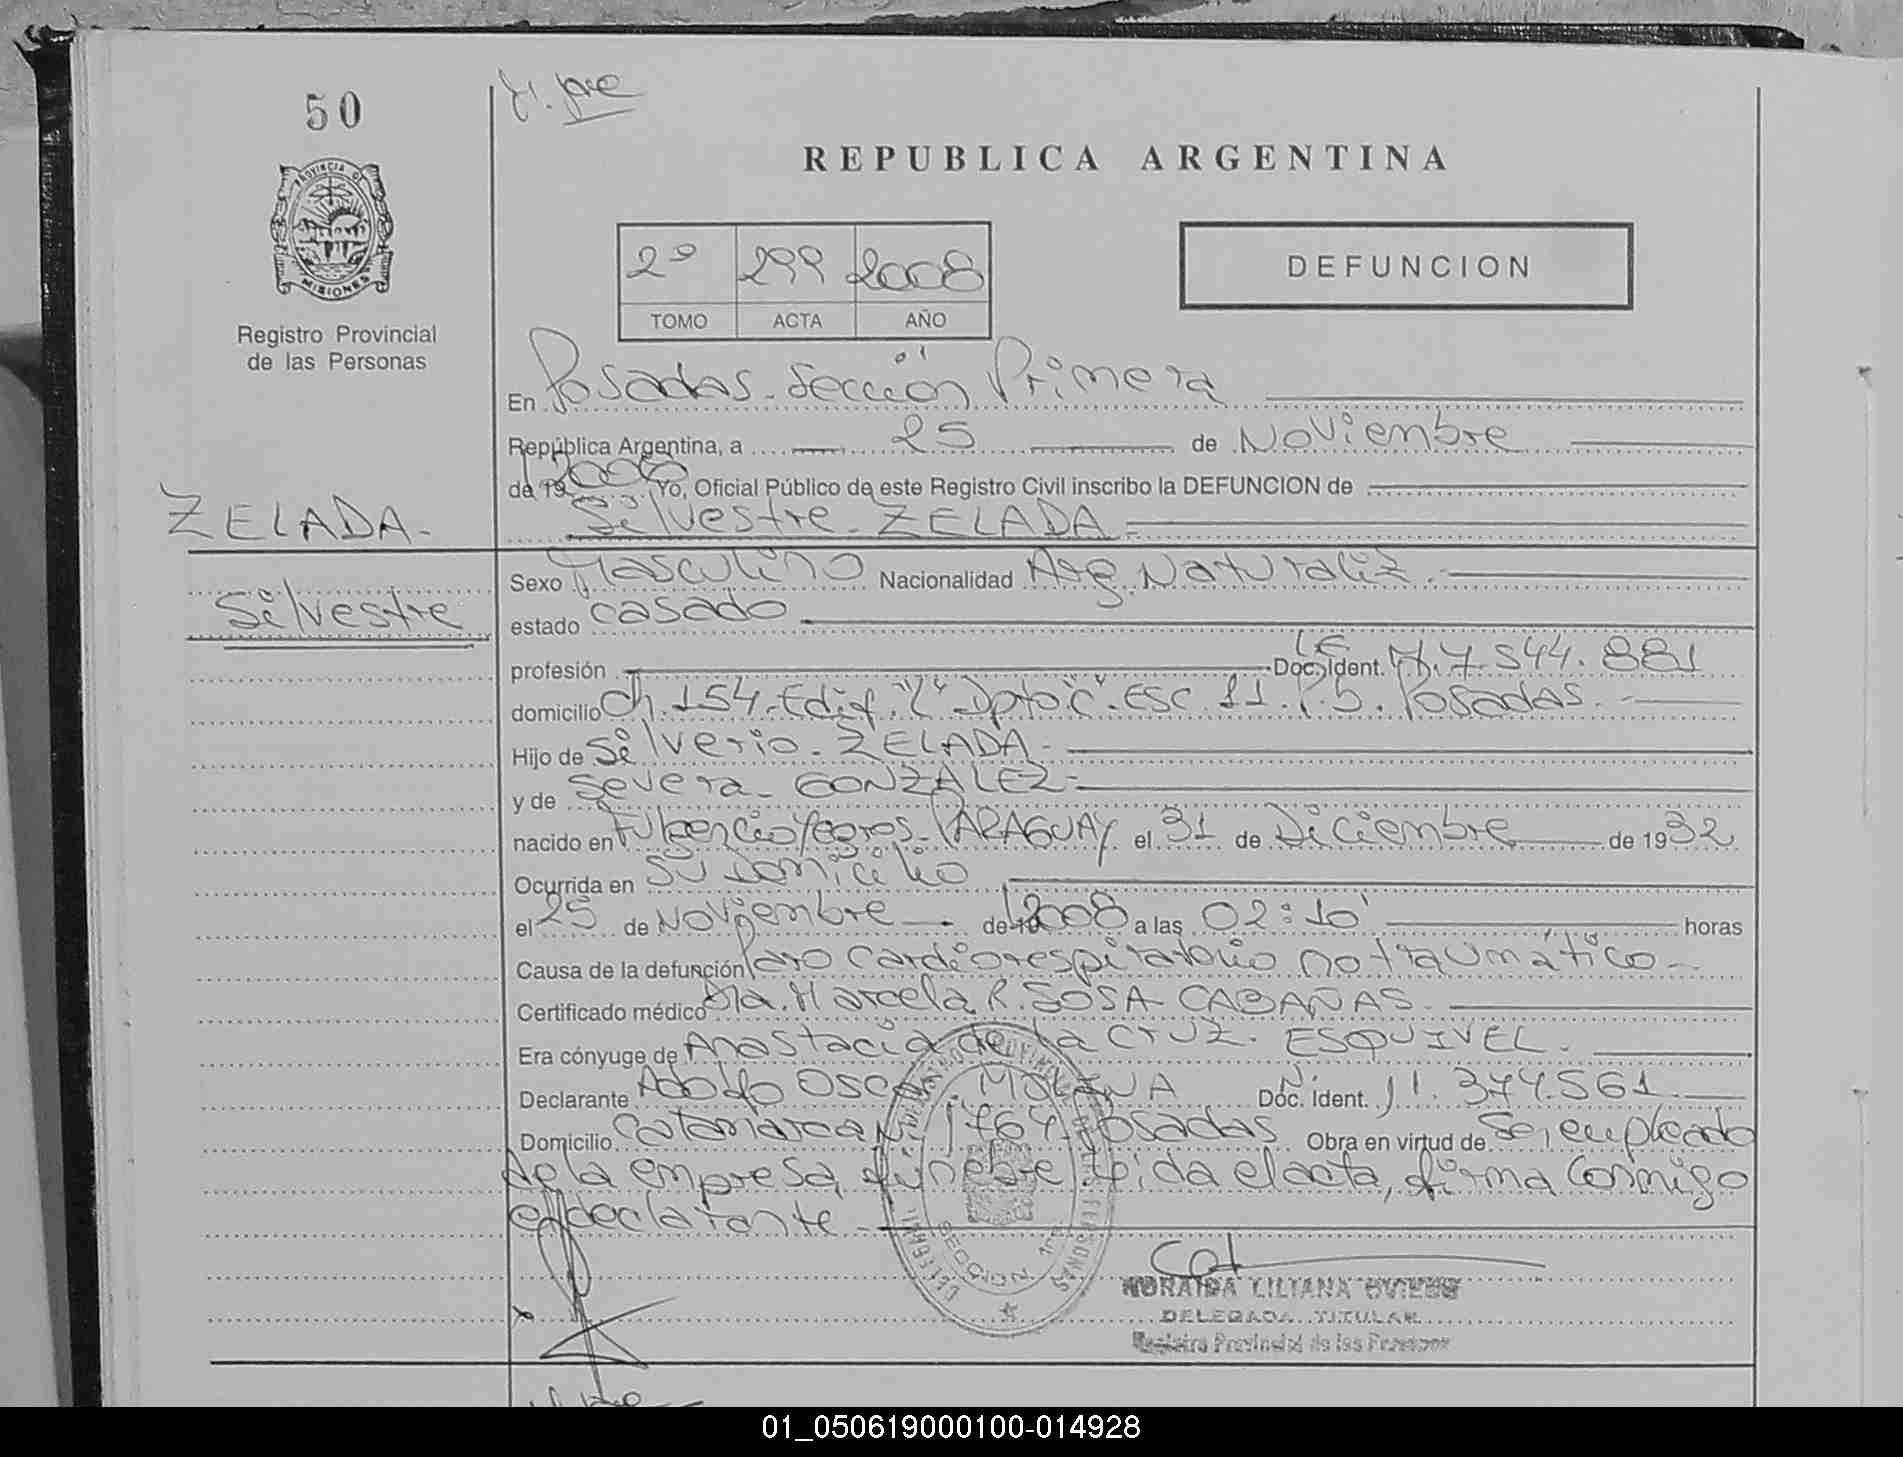 50
PROVINCIA DE
MISIONES
Registro Provincial
de las Personas
REPUBLICA ARGENTINA
2º 299 2008
TOMO ACTA AÑO
DEFUNCION
En Posadas. Sección Primera
República Argentina, a 25 de Noviembre
de 19 2008 Yo, Oficial Público de este Registro Civil inscribo la DEFUNCION de
Silvestre ZELADA
ZELADA.
Silvestre
Sexo Masculino Nacionalidad Arg. Naturaliz.
estado casado
profesión Doc. Ident. LE M.7.544.881
domicilio Ch. 154. Edif. "L" Dpto "C". Esc. 11. P.b. Posadas.
Hijo de Silverio. ZELADA.
y de Severa. GONZALEZ.
nacido en Fulgencio Yegros. PARAGUAY el 31 de Diciembre de 1932
Ocurrida en su Domicilio
el 25 de Noviembre de 19 2008 a las 02:10' horas
Causa de la defunción Paro Cardiorespiratorio no traumático
Certificado médico Dra. Marcela R. SOSA CABAÑAS
Era cónyuge de Anastacia de la Cruz. ESQUIVEL.
Declarante Adolfo Oscar MOLINA Doc. Ident. 11.374.561
Domicilio Catamarca Nº 1764 Posadas Obra en virtud de Ser empleado
de la empresa fúnebre leida el acta, firma Conmigo
el declarante
SECCION 1ra.
NORAIDA LILIANA
DELEGADA TITULAR
Registro Provincial de las Personas
01_050619000100-014928